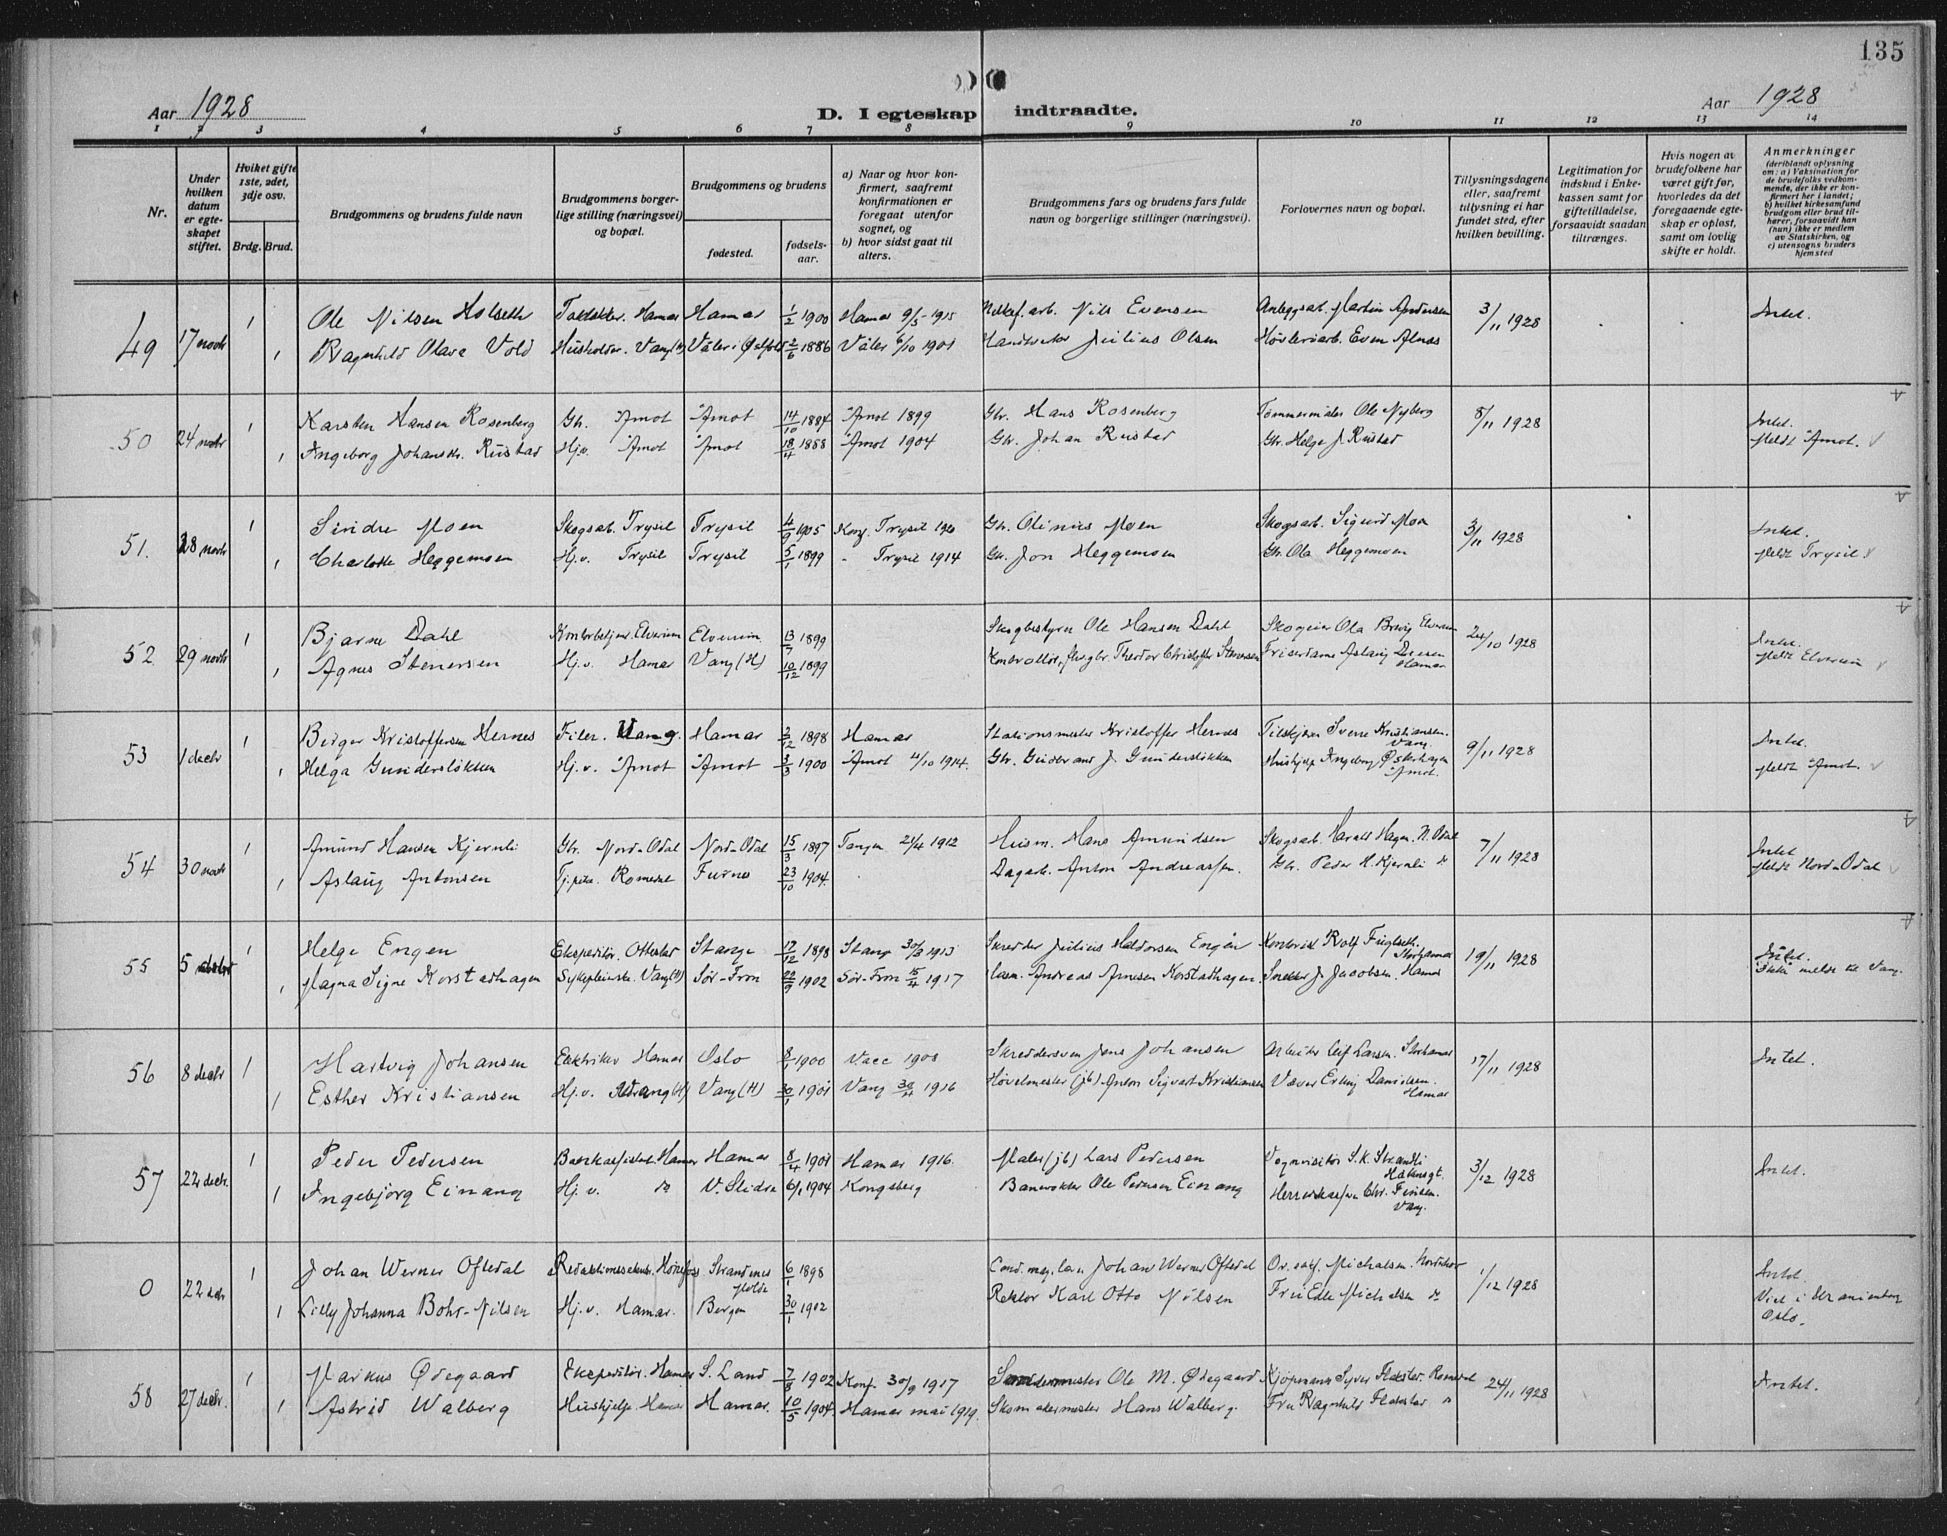 135
Aar 1928
D. I egteskap indtraadte.
Aar 1928
1 2 3 4 5 6 7 8 9 10 11 12 13 14
Nr.
Under hvilken datum er egteskapet stiftet.
Hviket gifte 1ste, 2det, 3dje osv.
Brdg. Brud.
Brudgommens og brudens fulde navn
Brudgommens borgerlige stilling (næringsvei) og bopæl.
Brudgommens og brudens
fødested.
fødselsaar.
a) Naar og hvor konfirmert, saafremt konfirmationen er foregaat utenfor sognet, og
b) hvor sidst gaat til alters.
Brudgommens fars og brudens fars fulde navn og borgerlige stillinger (næringsvei).
Forlovernes navn og bopæl.
Tillysningsdagene eller, saafremt tillysning ei har fundet sted, efter hvilken bevilling.
Legitimation for indskud i Enkekassen samt for giftetilladelse, forsaavidt saadan tiltrænges.
Hvis nogen av brudefolkene har været gift før, hvorledes da det foregaaende egteskap er opløst, samt om lovlig skifte er holdt.
Anmerkninger (deriblandt oplysning om: a) Vaksination for de brudefolks vedkommende, der ikke er konfirmert her i landet; b) hvilket kirkesamfund brudgom eller brud tilhører, forsaavidt han (hun) ikke er medlem av Statskirken, og c) utensogns bruders hjemsted
49 17 novbr 1 Ole Nilsen Holseth Hamar Hamar 1/2 1900 Hamar 9/5 1915 Nils Evensen Anleggsarb. Martin Andersen 3/11 1928 Intet.
1 Ragnhild Olava Vold Husholder. Vang (H) Våler i Østfold 2/6 1886 Våler 6/10 1901 Julius Olsen Høvleriarb. Even Alnæs
50 24 novbr 1 Karsten Hansen Rosenberg Gbr. Åmot Åmot 14/10 1884 Åmot 1899 Gbr. Hans Rosenberg Tømmermåler Ole Nyberg 8/11 1928 Intet.
1 Ingeborg Johansdtr. Rustad Hj.v. Åmot Åmot 18/4 1888 Åmot 1904 Gbr. Johan Rustad Gbr. Helge J. Rustad Meldt Åmot.
51. 28 novbr 1 Sindre Moen Skogsarb. Trysil Trysil 4/9 1905 Konf. Trysil Gbr. Olinius Moen Skogsarb. Sigurd Moen 3/11 1928 Intet.
1 Charlotte Heggemoen Hj.v. Trysil Trysil 5/1 1899 - Trysil 1914 Gbr. Jon Heggemoen Gbr. Ola Heggemoen Meldt Trysil
52 29 novbr 1 Bjarne Dahl Kontorbetjent. Elverum Elverum 13/7 1899 Skogbestyrer Ole Hansen Dahl Skogeier Ola Elverum 24/10 1928 Intet.
1 Agnes Stenersen Hj.v. Hamar Vang (H) 10/12 1899 Kontrollør, Theodor Christoffer Stenersen Aslaug Hamar Meldt Elverum
53 1 decbr 1 Birger Kristoffersen Hernes Filer. Vang. Hamar 2/12 1898 Hamar Stationsmester Kristoffer Hernes Sverre Kristiansen. Vang. 9/11 1928 Intet.
1 Helga Gundersløkken Hj.v. Åmot Åmot 3/3 1900 Åmot 4/10 1914. Gbr. Gudbrand J. Gundersløkken Hushjelp Ingeborg Østerhagen Åmot. Meldt Åmot.
54 30 novbr 1 Amund Hansen Kjernli Gbr. Nord-Odal Nord-Odal 15/3 1897 Tangen 21/4 1912 Husm. Hans Amundsen Skogsarb. Harald Hagen. N. Odal 7/11 1928 Intet
1 Aslaug Antonsen Tj.pike. Romedal Furnes 23/10 1904. Dagarb. Anton Andreassen. Gbr. Peder H. Kjernli do Meldt Nord-Odal
55 5 decbr 1 Helge Engen Ekspeditør. Ottestad Stange 17/12 1898 Stange 30/3 1913 Skredder Julius Haldorsen Engen Kontorist Rolf Storhamar 19/11 1928 Intet.
1 Magna Signe Korstadhagen Sykepleierske. Vang (H) Sør-Fron 22/9 1902 Sør-Fron 15/4 1917 Andreas Arnesen Korstadhagen. Snekker J. Jacobsen. Hamar Ikke melde til Vang.
56 8 decbr 1 Hartvig Johansen Elektriker Hamar Oslo 8/1 1900 Vacc 1900 Skreddersven Jens Johansen Arbeider Leif Larsen. Storhamar 17/11 1928 Intet.
1 Esther Kristiansen Hj.v. Vang (H) Vang (H) 30/1 1901 Vang 30/4 1916 Høvelmester (jb) Anton Sigvart Kristiansen Væver Erling Danielsen. Hamar
57 22 decbr. 1 Peder Pedersen Hamar Hamar 8/4 1901 Hamar 1916. Maler (jb) Lars Pedersen Vognvisitør S. K. Strandli Håkonsgt. 3/12 1928 Intet.
1 Ingebjørg Einang Hj.v. do V. Slidre 6/1 1904 Kongsberg Banevokter Ole Pedersen Einang Herredskasserer Chr. Finden. Vang.
0 22 dcbr 1 Johan Werner Oftedal Redaktionssekr. Hønefoss Strandenes Molde 6/1 1898 Cand. mag. Johan Werner Oftedal Michalsen. 1/12 1928 Intet.
1 Lilly Johanna Bohr-Nilsen Hj.v. Hamar. Bergen 30/1 1902 Rektor Karl Otto Nilsen Fru Edle Michalsen do Viet i Uranienborg Oslo.
58 27 decbr. 1 Markus Ødegaard Ekspeditør. Hamar S. Land 7/8 1902 Konf. 30/9 1917 Ole M. Ødegaard Kjøpmann Syver Flakstad. Romedal 24/11 1928 Intet.
1 Astrid Walberg Hushjelp Hamar Hamar. 10/5 1904. Hamar mai 1919. Skomakermester Hans Walberg. Fru Ragnhild Flakstad do